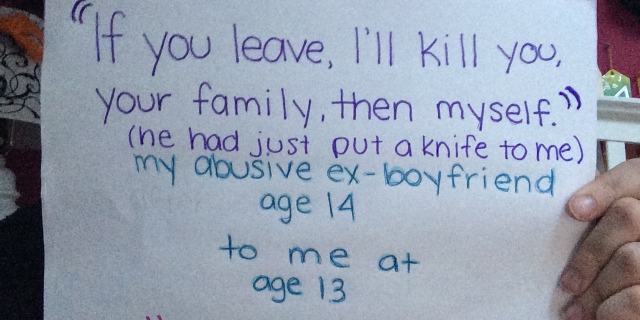 "If you leave, I'll kill you,
your family, then myself."
(he had just put a knife to me)
my abusive ex-boyfriend
age 14
to me at
age 13